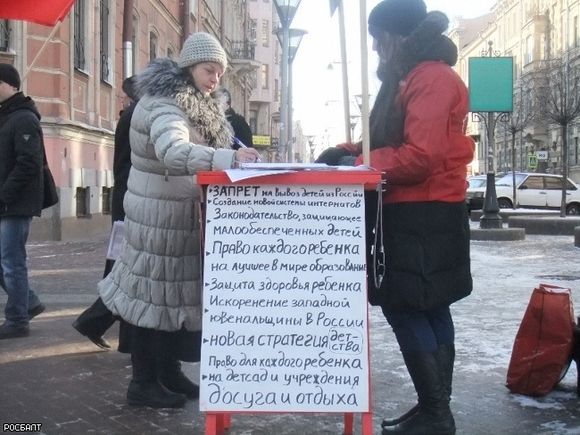 ЗАПРЕТ НА ВЫВОЗ ДЕТЕЙ ИЗ РОССИИ
СОЗДАНИЕ НОВОЙ СИСТЕМЫ ИНТЕРНАТОВ
ЗАКОНОДАТЕЛЬСТВО, ЗАЩИЩАЮЩЕЕ
МАЛООБЕСПЕЧЕННЫХ ДЕТЕЙ
ПРАВО КАЖДОГО РЕБЕНКА
НА ЛУЧШЕЕ В МИРЕ ОБРАЗОВАНИЕ
ЗАЩИТА ЗДОРОВЬЯ РЕБЕНКА
ИСКОРЕНЕНИЕ ЗАПАДНОЙ
ЮВЕНАЛЬЩИНЫ В РОССИИ
НОВАЯ СТРАТЕГИЯ ДЕТ-
СТВА
ПРАВО ДЛЯ КАЖДОГО РЕБЕНКА
НА ДЕТСАД И УЧРЕЖДЕНИЯ
ДОСУГА И ОТДЫХА
РОСБАЛТ